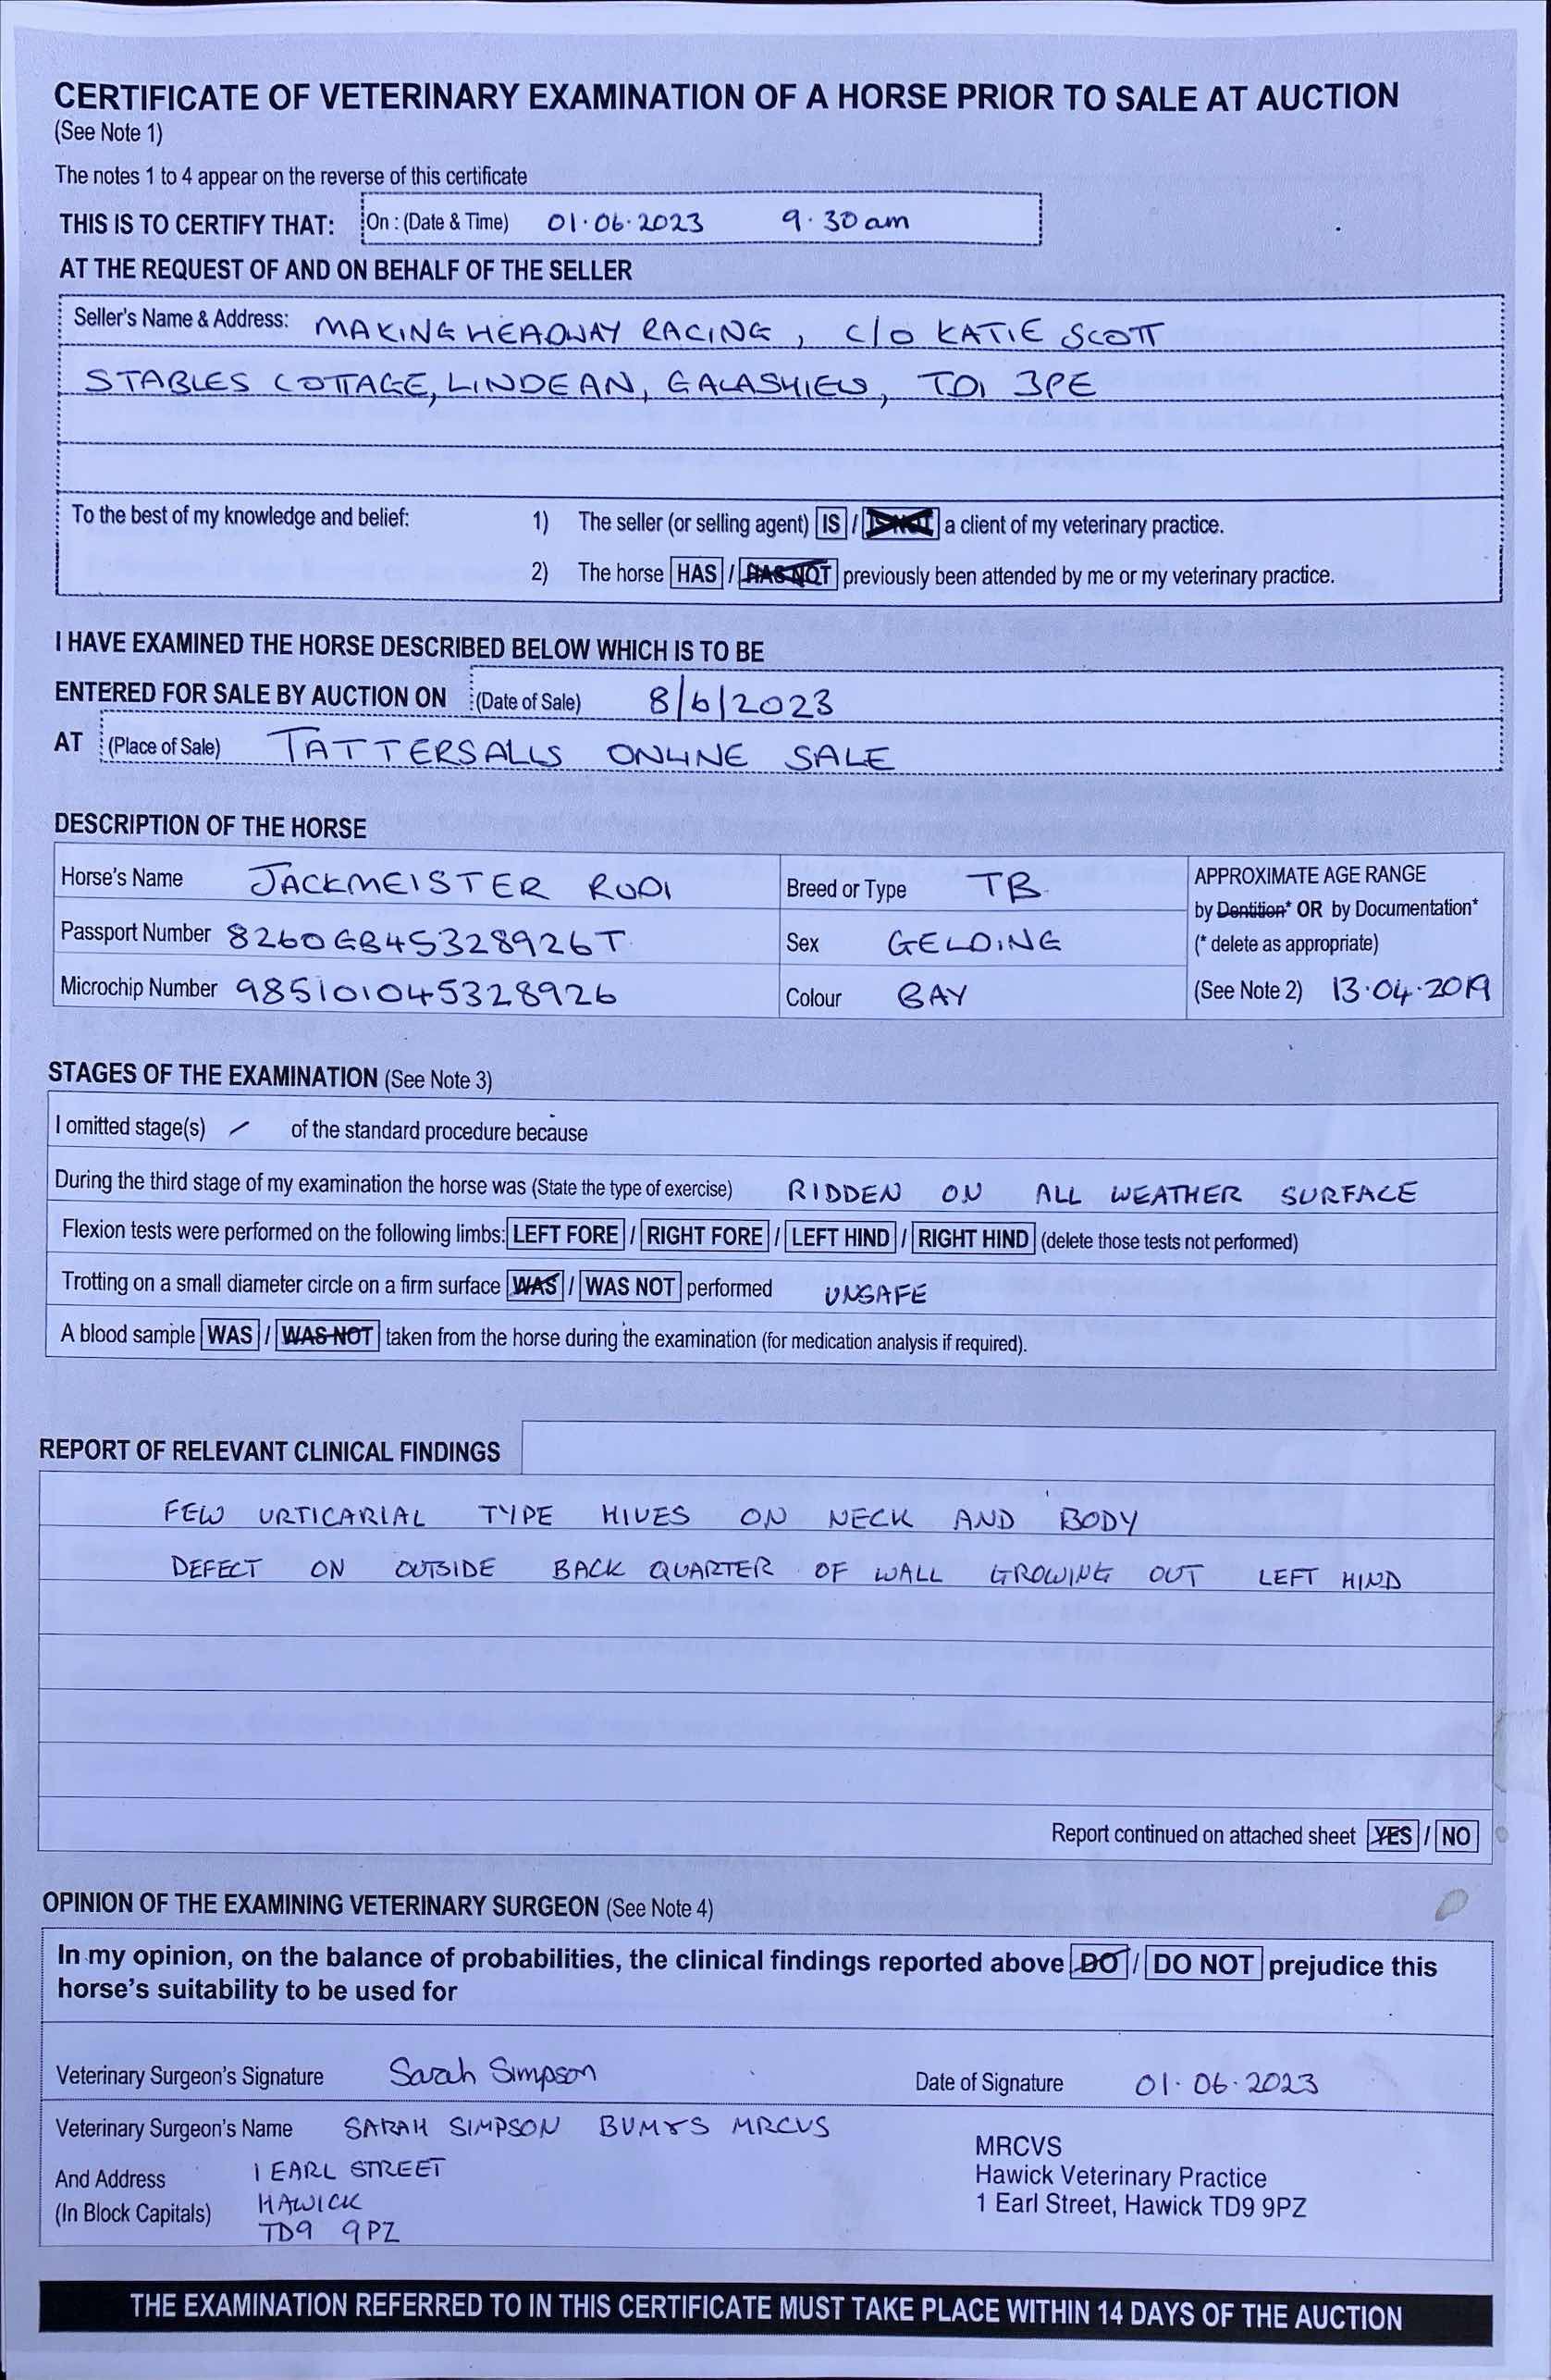 CERTIFICATE OF VETERINARY EXAMINATION OF A HORSE PRIOR TO SALE AT AUCTION
(See Note 1)
The notes 1 to 4 appear on the reverse of this certificate
THIS IS TO CERTIFY THAT: On : (Date & Time) 01·06·2023 9·30am
AT THE REQUEST OF AND ON BEHALF OF THE SELLER
Seller's Name & Address: MAKING HEADWAY RACING, C/O KATIE SCOTT
STABLES COTTAGE, LINDEAN, GALASHIELS, TD1 3PE
To the best of my knowledge and belief: 1) The seller (or selling agent) IS / IS NOT a client of my veterinary practice.
2) The horse HAS / HAS NOT previously been attended by me or my veterinary practice.
I HAVE EXAMINED THE HORSE DESCRIBED BELOW WHICH IS TO BE
ENTERED FOR SALE BY AUCTION ON (Date of Sale) 8/6/2023
AT (Place of Sale) TATTERSALLS ONLINE SALE
DESCRIPTION OF THE HORSE
Horse's Name JACKMEISTER RUDI Breed or Type TB APPROXIMATE AGE RANGE
by Dentition* OR by Documentation*
Passport Number 8260GB45328926T Sex GELDING (* delete as appropriate)
Microchip Number 985101045328926 Colour BAY (See Note 2) 13·04·2019
STAGES OF THE EXAMINATION (See Note 3)
I omitted stage(s) / of the standard procedure because
During the third stage of my examination the horse was (State the type of exercise) RIDDEN ON ALL WEATHER SURFACE
Flexion tests were performed on the following limbs: LEFT FORE / RIGHT FORE / LEFT HIND / RIGHT HIND (delete those tests not performed)
Trotting on a small diameter circle on a firm surface WAS / WAS NOT performed UNSAFE
A blood sample WAS / WAS NOT taken from the horse during the examination (for medication analysis if required).
REPORT OF RELEVANT CLINICAL FINDINGS
FEW URTICARIAL TYPE HIVES ON NECK AND BODY
DEFECT ON OUTSIDE BACK QUARTER OF WALL GROWING OUT LEFT HIND
Report continued on attached sheet YES / NO
OPINION OF THE EXAMINING VETERINARY SURGEON (See Note 4)
In my opinion, on the balance of probabilities, the clinical findings reported above DO / DO NOT prejudice this
horse's suitability to be used for
Veterinary Surgeon's Signature Sarah Simpson Date of Signature 01·06·2023
Veterinary Surgeon's Name SARAH SIMPSON BVM&S MRCVS
MRCVS
And Address 1 EARL STREET Hawick Veterinary Practice
(In Block Capitals) HAWICK 1 Earl Street, Hawick TD9 9PZ
TD9 9PZ
THE EXAMINATION REFERRED TO IN THIS CERTIFICATE MUST TAKE PLACE WITHIN 14 DAYS OF THE AUCTION